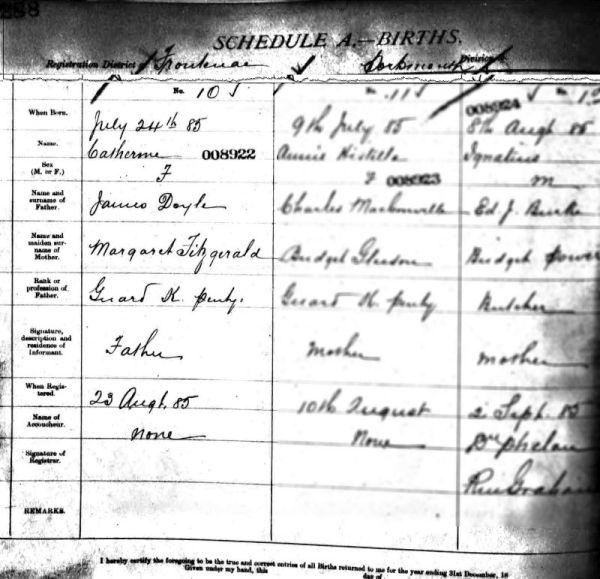 SCHEDULE A.—BIRTHS.
Registration District Frontenac Division
No. 10 11
When Born. July 24th 85 9th July 85 008924 8th Augt 85
Name. Catherine 008922 Annie Ignatius
Sex (M. or F.) F F 008923 M
Name and surname of Father. James Doyle Charles Ed J. Burke
Name and maiden surname of Mother. Margaret Fitzgerald Bridget Gleeson Bridget Power
Rank or profession of Father. Guard K. Penty. Guard K. Penty Butcher
Signature, description and residence of Informant. Father Mother Mother
When Registered. 23 Augt. 85 10th August 2 Sept. 85
Name of Accoucheur. None None Dr Phelan
Signature of Registrar.
REMARKS.
I hereby certify the foregoing to be the true and correct entries of all Births returned to me for the year ending 31st December, 18
Given under my hand, this day of